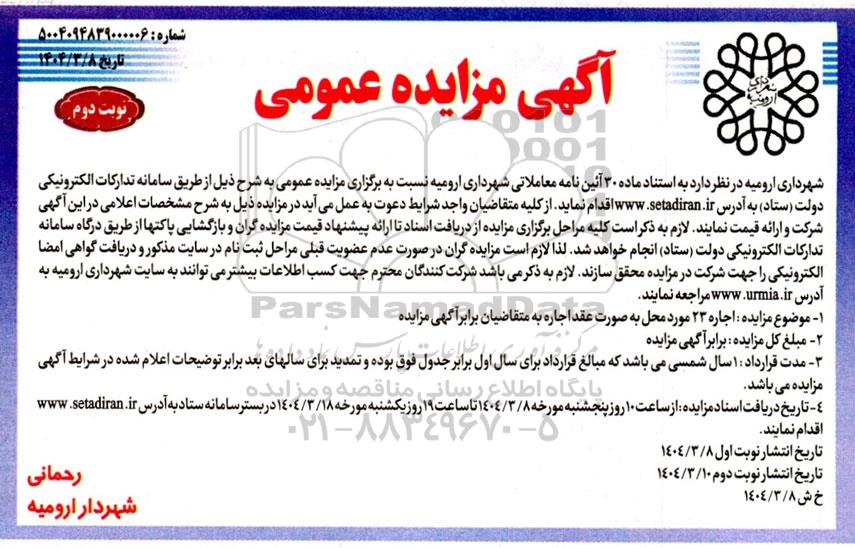 شماره: ۵۰۰۴۰۹۴۸۳۹۰۰۰۰۰۶
تاریخ ۱۴۰۴/۳/۸
نوبت دوم
آگهی مزایده عمومی
شهرداری ارومیه
شهرداری ارومیه در نظر دارد به استناد ماده ۳۰ آئین نامه معاملاتی شهرداری ارومیه نسبت به برگزاری مزایده عمومی به شرح ذیل از طریق سامانه تدارکات الکترونیکی
دولت (ستاد) به آدرس www.setadiran.ir اقدام نماید. از کلیه متقاضیان واجد شرایط دعوت به عمل می آید در مزایده ذیل به شرح مشخصات اعلامی در این آگهی
شرکت و ارائه قیمت نمایند. لازم به ذکر است کلیه مراحل برگزاری مزایده از دریافت اسناد تا ارائه پیشنهاد قیمت مزایده گران و بازگشایی پاکتها از طریق درگاه سامانه
تدارکات الکترونیکی دولت (ستاد) انجام خواهد شد. لذا لازم است مزایده گران در صورت عدم عضویت قبلی مراحل ثبت نام در سایت مذکور و دریافت گواهی امضا
الکترونیکی را جهت شرکت در مزایده محقق سازند. لازم به ذکر می باشد شرکت کنندگان محترم جهت کسب اطلاعات بیشتر می توانند به سایت شهرداری ارومیه به
آدرس www.urmia.ir مراجعه نمایند.
۱- موضوع مزایده : اجاره ۲۳ مورد محل به صورت عقد اجاره به متقاضیان برابر آگهی مزایده
۲- مبلغ کل مزایده : برابر آگهی مزایده
۳- مدت قرارداد : ۱ سال شمسی می باشد که مبالغ قرارداد برای سال اول برابر جدول فوق بوده و تمدید برای سالهای بعد برابر توضیحات اعلام شده در شرایط آگهی
مزایده می باشد.
۴- تاریخ دریافت اسناد مزایده : از ساعت ۱۰ روز پنجشنبه مورخه ۱۴۰۴/۳/۸ تا ساعت ۱۹ روز یکشنبه مورخه ۱۴۰۴/۳/۱۸ در بستر سامانه ستاد به آدرس www.setadiran.ir
اقدام نمایند.
تاریخ انتشار نوبت اول ۱۴۰۴/۳/۸
تاریخ انتشار نوبت دوم ۱۴۰۴/۳/۱۰
خ ش ۱۴۰۴/۳/۸
رحمانی
شهردار ارومیه
ParsNamadData
پایگاه اطلاع رسانی مناقصه و مزایده
۰۲۱-۸۸۳۴۹۶۷۰-۵